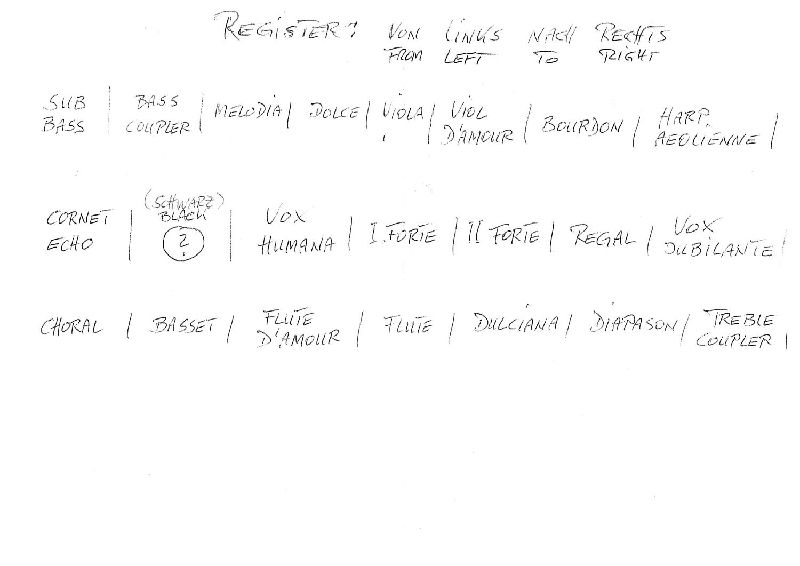 REGISTER: VON LINKS NACH RECHTS
FROM LEFT TO RIGHT
SUB BASS | BASS COUPLER | MELODIA | DOLCE | VIOLA | VIOL D'AMOUR | BOURDON | HARP. AEOLIENNE |
CORNET ECHO | (SCHWARZ) BLACK ? | VOX HUMANA | I. FORTE | II FORTE | REGAL | VOX JUBILANTE |
CHORAL | BASSET | FLUTE D'AMOUR | FLUTE | DULCIANA | DIAPASON | TREBLE COUPLER |